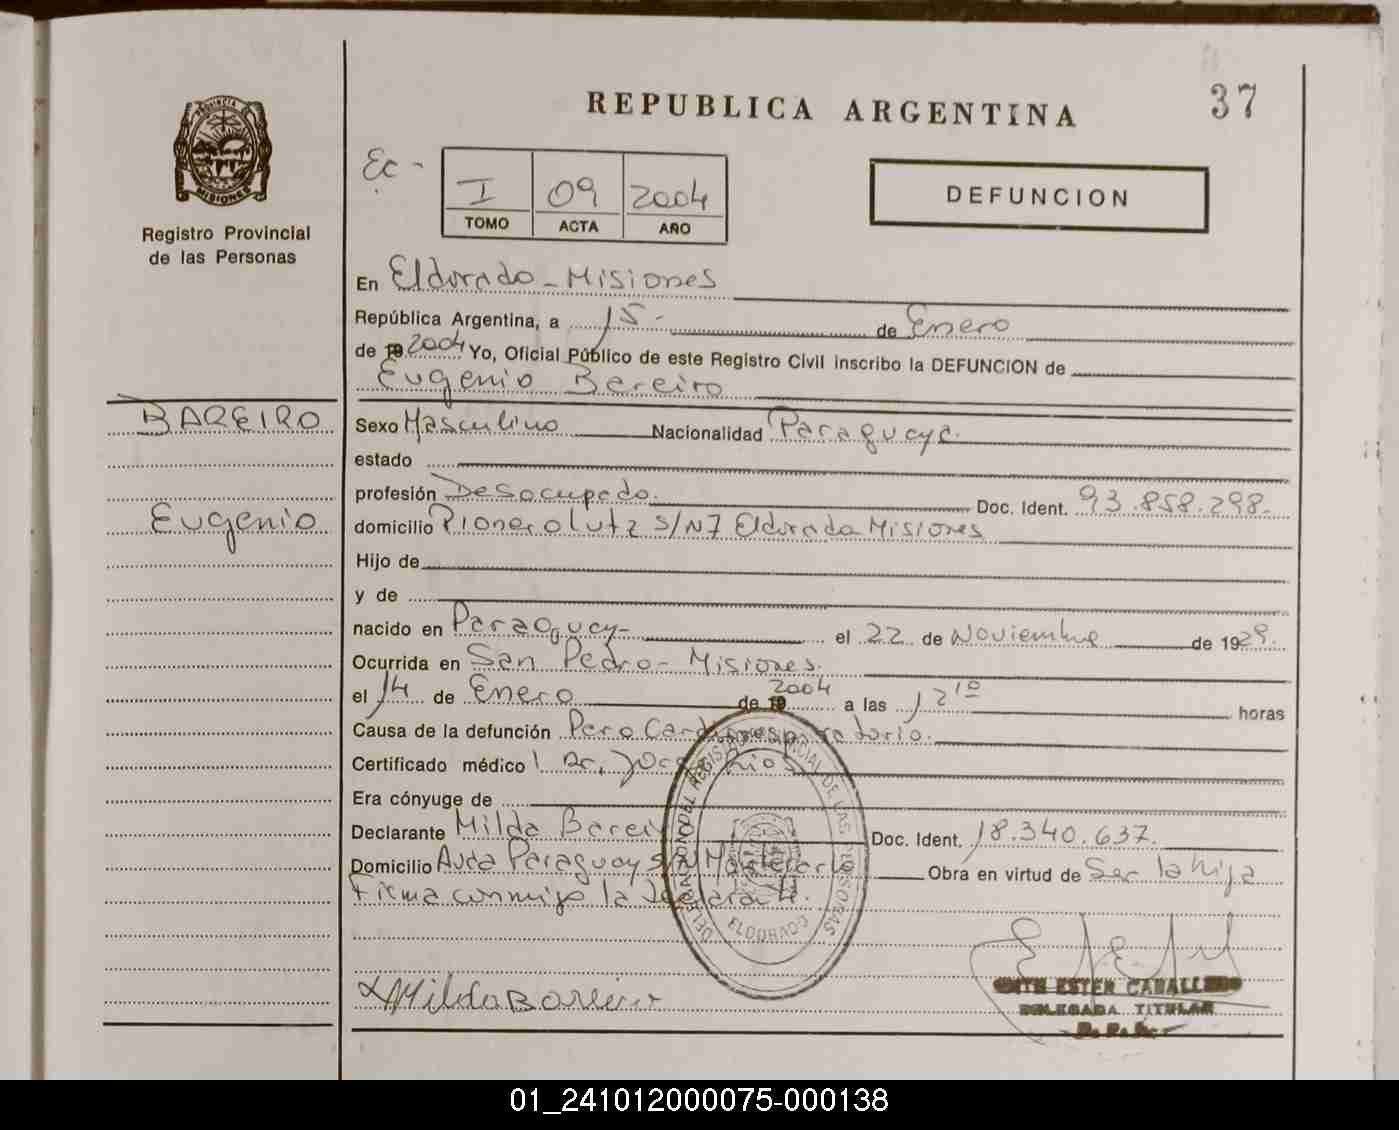 37
REPUBLICA ARGENTINA
PROVINCIA DE
MISIONES
Registro Provincial
de las Personas
Ec -
I 09 2004
TOMO ACTA AÑO
DEFUNCION
En Eldorado - Misiones
República Argentina, a 15 - de Enero
de 19 2004 Yo, Oficial Público de este Registro Civil inscribo la DEFUNCION de
Eugenio Bareiro
BAREIRO
Eugenio
Sexo Masculino Nacionalidad Paraguaya.
estado
profesión Desocupado. Doc. Ident. 93.858.298.
domicilio Pionero Lutz s/Nº Eldorado Misiones
Hijo de
y de
nacido en Paraguay- el 22 de Noviembre de 1929.
Ocurrida en San Pedro - Misiones.
el 14 de Enero de 19 2004 a las 12 10 horas
Causa de la defunción Paro Cardiorespiratorio.
Certificado médico Dr. Jorge Rios
Era cónyuge de
Declarante Milda Bareiro Doc. Ident. 18.340.637.
Domicilio Avda Paraguay s/N Montecarlo Obra en virtud de Ser la hija
Firma conmigo la Declarante.
DELEGACION DEL REGISTRO PROVINCIAL DE LAS PERSONAS
ELDORADO
Milda Bareiro
EDITH ESTER CABALLERO
DELEGADA TITULAR
01_241012000075-000138